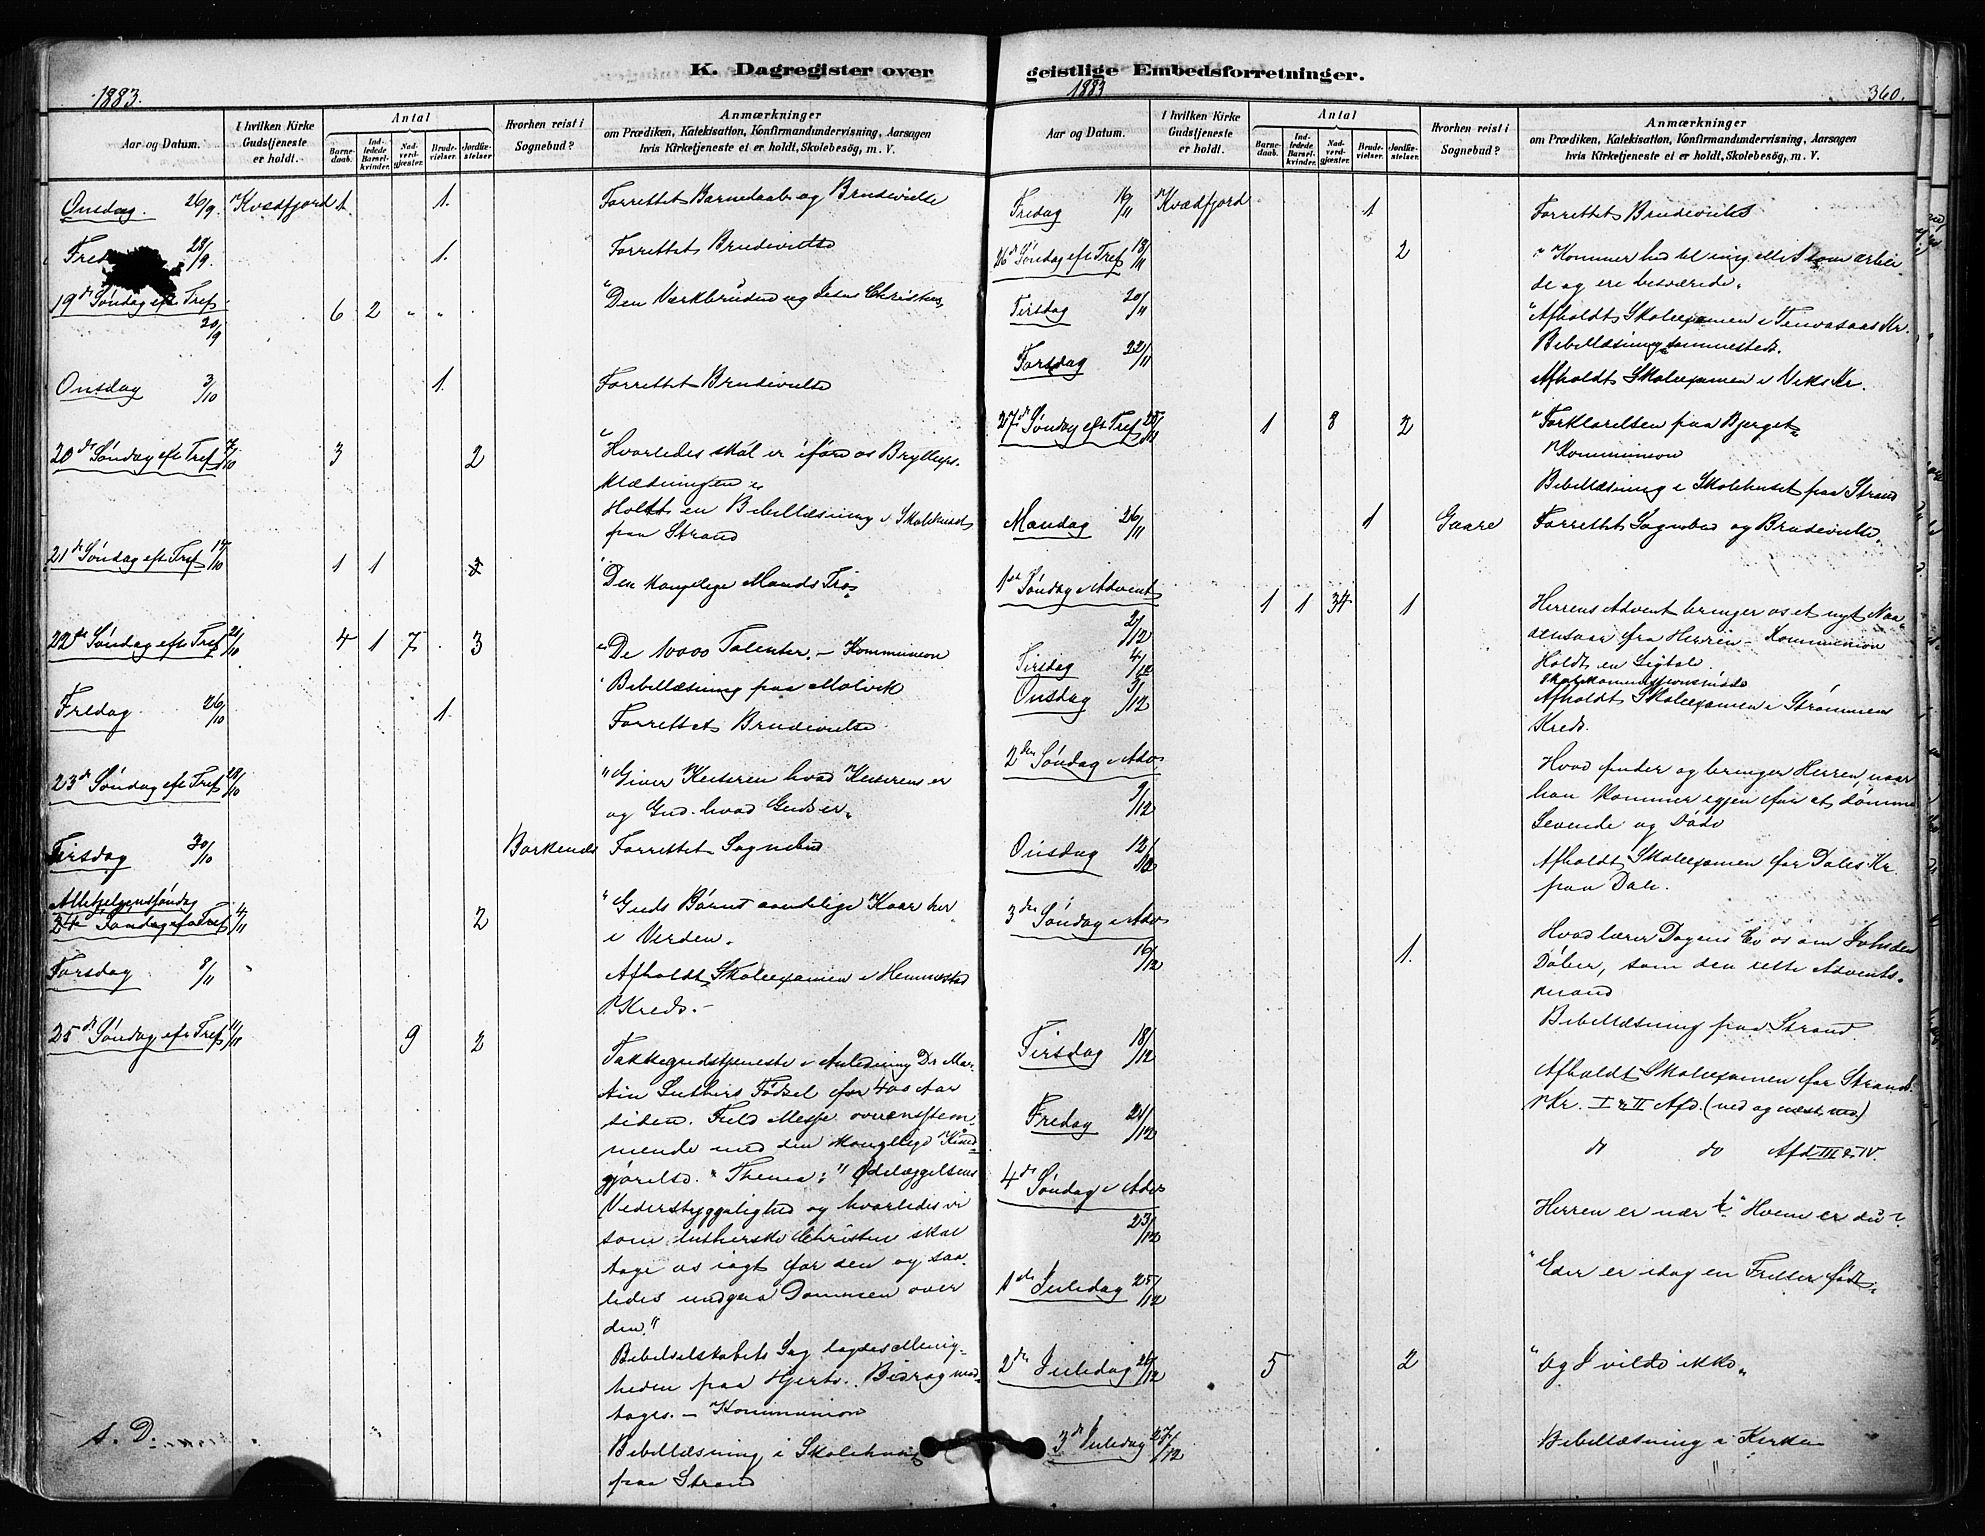 K. Dagregister over
1883.
Aar og Datum.
I hvilken Kirke Gudstjeneste er holdt.
Antal
Barnedaab.
Indledede Barselkvinder.
Nadverdgjæster.
Brudevielser.
Jordfæstelser.
Hvorhen reist i Sognebud?
Anmærkninger
om Prædiken, Katekisation, Konfirmandundervisning, Aarsagen
hvis Kirketjeneste ei er holdt, Skolebesög, m. V.
Onsdag 26/9 Kvædfjord 1. 1. Forrettet Barnedaab og Brudevielse
Fred 28/9 1. Forrettet Brudevielse
19de Søndag eft Tref 6 2 " " "Den Værkbrudne og Jesus Christus
30/9
Onsdag 3/10 1. Forrettet Brudevielse
20de Søndag eft Tref 7/10 3 2 "Hvorledes skal vi iføre os Bryllups-
klædningen"
Holdt en Bibellæsning i Skolehuset
paa Strand
21de Søndag eft Tref 14/10 1 1 2 "Den kongelige Mands Tro"
22de Søndag eft Tref 21/10 4 1 7 3 "De 10000 Talenter. – Kommunion
Bibellæsning paa Molvik
Fredag 26/10 1. Forrettet Brudevielse
23de Søndag eft Tref 28/10 "Giver Keiseren hvad Keiserens er
og Gud hvad Guds er"
Tirsdag 30/10 Borkenæs Forrettet Sognebud
Allehelgenssøndag
24de Søndag efr Tref 4/11 2 "Guds Børns aandelige Kaar her
i Verden.
Torsdag 8/11 " Afholdt Skolexamen i Hemmestad
Kreds. –
25de Søndag eft Tref 11/11 9 2
Takkegudstjeneste i Anledning Dr Mar-
tin Luthers Fødsel for 400 Aar
siden. Fuld Messe overensstem-
mende med den kongelige Kund-
gjørelse. Thema: "Ødelæggelsens
Vederstyggelighed og hvorledes vi
som lutherske Christne skal
tage os iagt for den og saa-
ledes undgaa Dommen over
den."
Bibelselskabets Sag lagdes Menig-
heden paa Hjerte. Bidrag mod-
toges. – Kommunion
Bibellæsning i Skolehuset
paa Strand
s. D.
geistlige Embedsforretninger.
1883
360.
Aar og Datum.
I hvilken Kirke Gudstjeneste er holdt.
Antal
Barnedaab.
Indledede Barselkvinder.
Nadverdgjæster.
Brudevielser.
Jordfæstelser.
Hvorhen reist i Sognebud?
Anmærkninger
om Prædiken, Katekisation, Konfirmandundervisning, Aarsagen
hvis Kirketjeneste ei er holdt, Skolebesög, m. V.
Fredag 16/11 Kvædfjord 1 Forrettet Brudevielse
26de Søndag eft Tref 18/11 2 "Kommer hid til mig alle I som arbei
de og ere besværede"
Tirsdag 20/11 "Afholdt Skolexamen i Kr.
Bibellæsning sammesteds.
Torsdag 22/11 Afholdt Skolexamen i Viks Kr.
27de Søndag eft Tref 25/11 1 8 2 "Forklarelsen paa Bjerget"
Kommunion
Bibellæsning i Skolehuset paa Strand
Mandag 26/11 1 Gaare Forrettet Sognebud og Brudevielse.
1ste Søndag i Advent 1 1 34 1 Herrens Advent bringer os et nyt Naa-
2/12 densaar fra Herren – Kommunion
Tirsdag 4/12 Holdt en Ligtale.
Skolekommissionsmøde
Onsdag 5/12 Afholdt Skolexamen i Strømmens
Kreds.
2den Søndag i Adv Hvad finder og bringer Herren, naar
9/12 han kommer igjen for at dømme
Levende og Døde
Onsdag 12/12 Afholdt Skolexamen for Dales Kr
paa Dale.
3die Søndag i Adv
16/12 1. Hvad lærer Dagens Ev os om Johs den
Døber, som den rette Advents-
mand
Bibellæsning paa Strand.
Tirsdag 18/12 Afholdt Skolexamen for Strands
Kr. I & II Afd. (ned og næst ned)
Fredag 21/12 do do Afd III & IV.
4de Søndag i Adv
23/12 Herren er nær Hvem er du?
1ste Juledag 25/12 "Eder er idag en Frelser født"
2den Juledag 26/12 5 2 "og I vilde ikke"
3de Juledag 27/12 Bibellæsning i Kirken